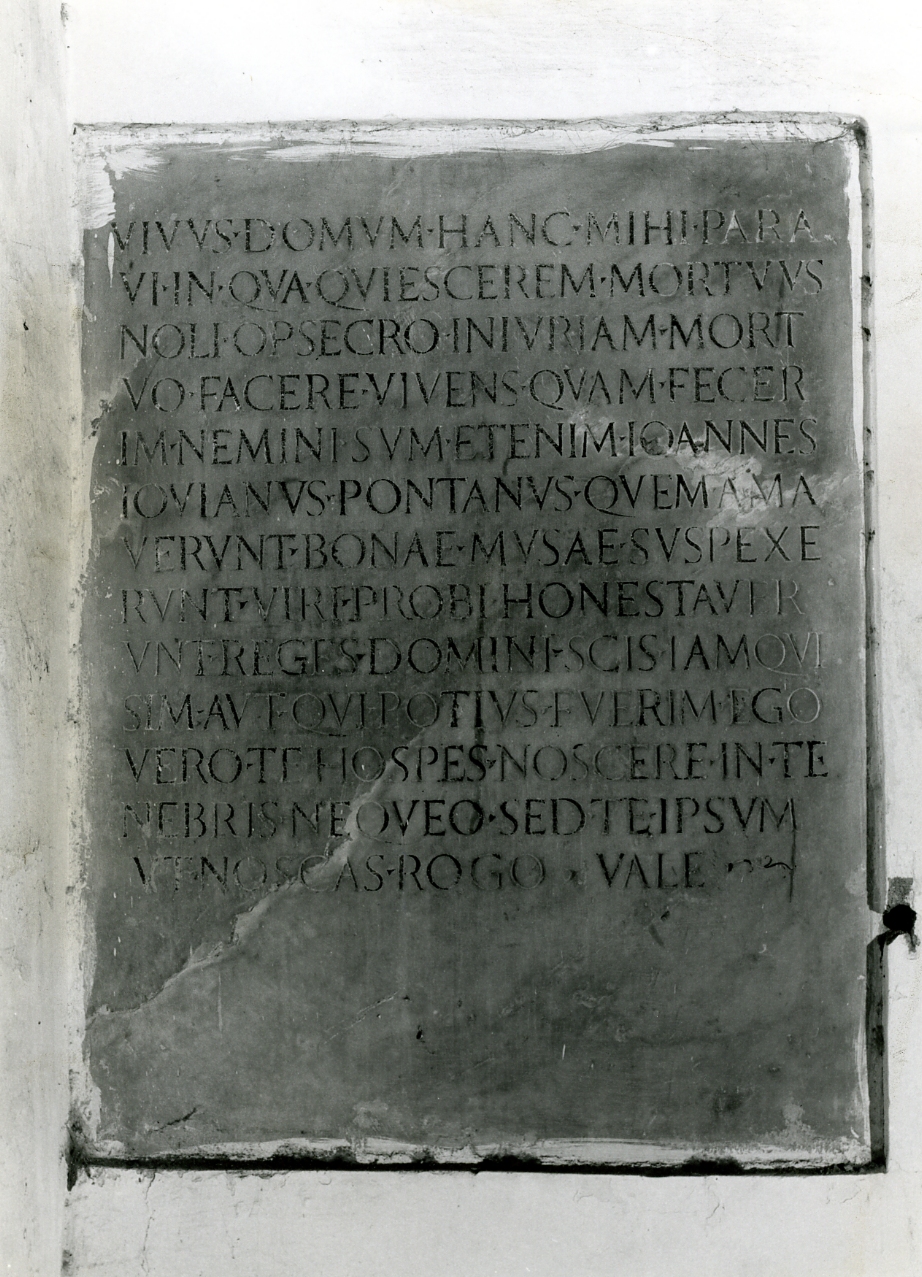 VIVVS·DOMVM·HANC·MIHI·PARA
VI·IN·QVA·QVIESCEREM·MORTVVS
NOLI·OPSECRO·INIVRIAM·MORT
VO·FACERE·VIVENS·QVAM·FECER
IM·NEMINI·SVM·ETENIM·IOANNES
IOVIANVS·PONTANVS·QVEM·AMA
VERVNT·BONAE·MVSAE·SVSPEXE
RVNT·VIRI·PROBI·HONESTAVER
VNT·REGES·DOMINI·SCIS·IAM·QVI
SIM·AVT·QVI·POTIVS·FVERIM·EGO
VERO·TE·HOSPES·NOSCERE·IN·TE
NEBRIS·NEQVEO·SED·TE·IPSVM
VT·NOSCAS·ROGO · VALE